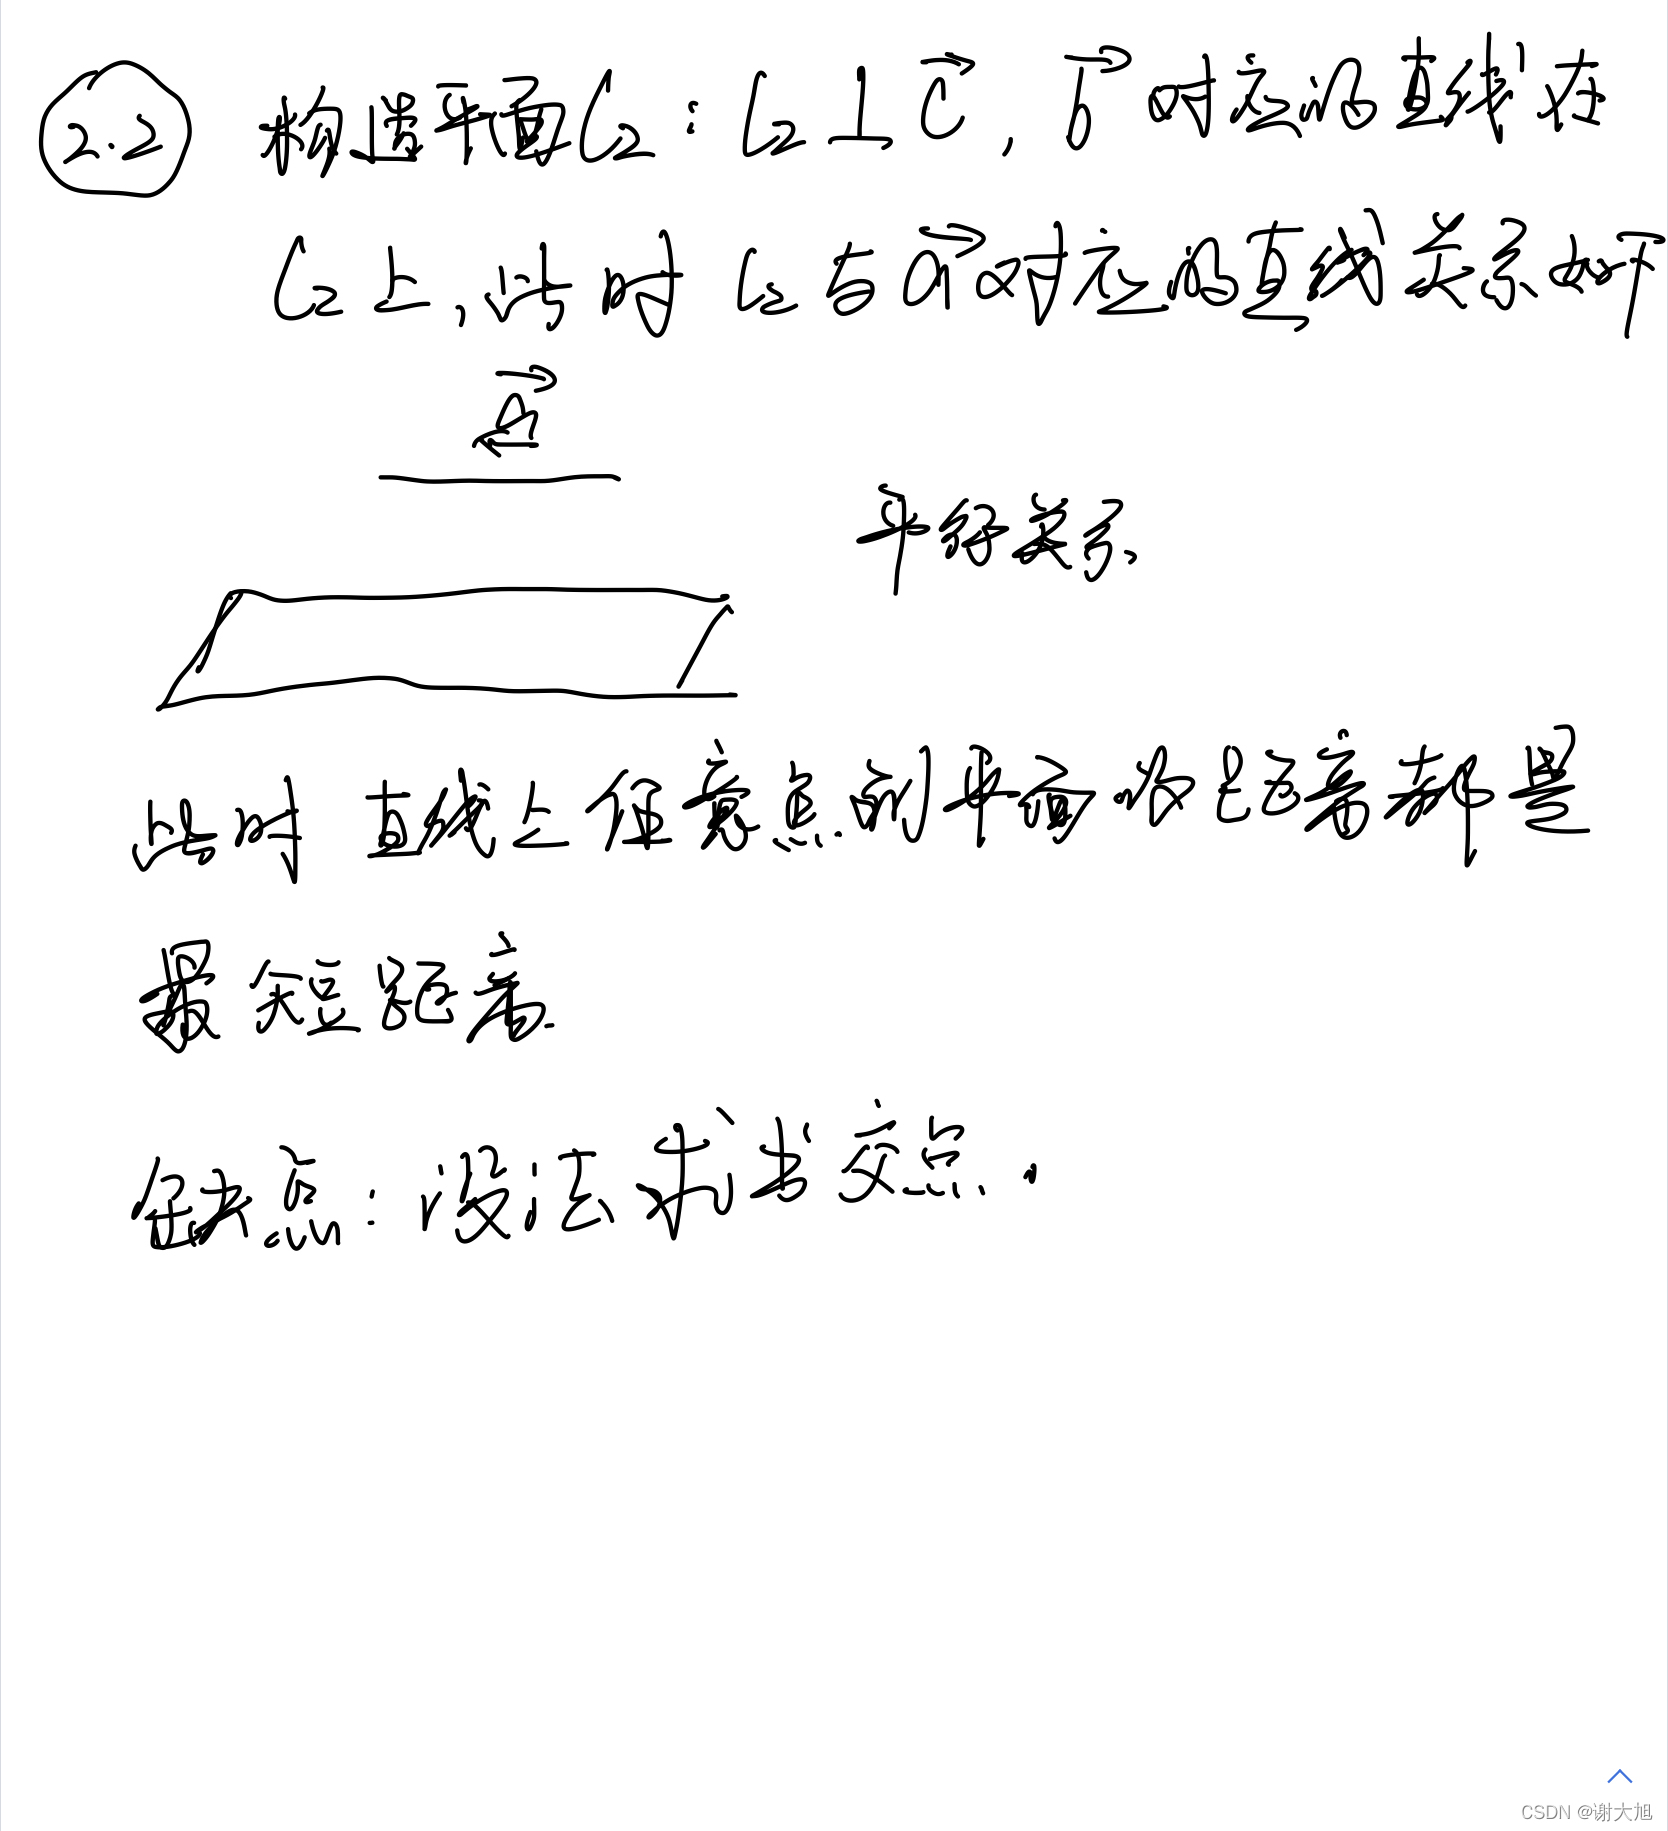 2.2 构造平面C₂：C₂⊥c⃗，b⃗对应的直线在
C₂上，此时C₂与a⃗对应的直线关系如下
a⃗
平行关系
此时直线上任意点到平面的距离都是
最短距离
缺点：没法求出交点.
CSDN @谢大旭